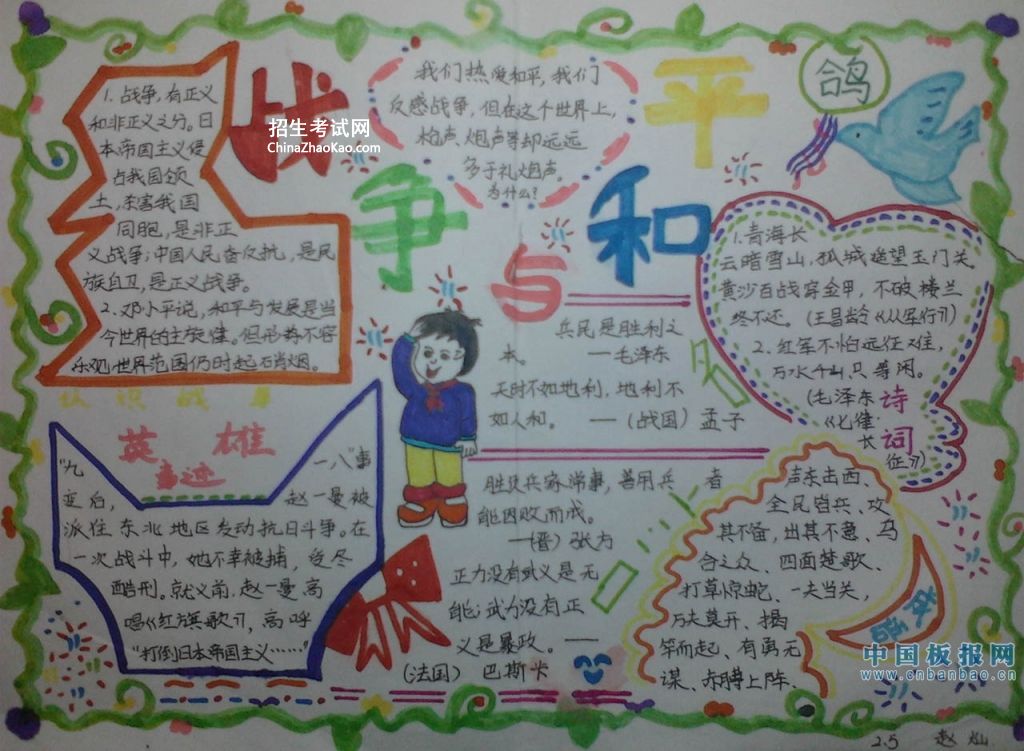 战争与和平
鸽
招生考试网
ChinaZhaoKao.com
我们热爱和平,我们
反感战争,但在这个世界上,
枪声、炮声等却远远
多于礼炮声。
为什么?
1.战争,有正义
和非正义之分。日
本帝国主义侵
占我国领
土,杀害我国
同胞,是非正
义战争;中国人民奋反抗,是民
族自卫,是正义战争。
2.邓小平说,和平与发展是当
今世界的主旋律。但形势不容
乐观,世界范围仍时起硝烟。
认识战争
英雄
事迹
"九一八"事
变后,赵一曼被
派往东北地区发动抗日斗争。在
一次战斗中,她不幸被捕,受尽
酷刑。就义前,赵一曼高
唱《红旗歌》,高呼
"打倒日本帝国主义……"
兵民是胜利之
本。——毛泽东
天时不如地利,地利不
如人和。——(战国)孟子
名
胜败兵家常事,善用兵者
能因败而成。
——(晋)张方
正力没有武义是无
能;武力没有正
义是暴政。——
(法国)巴斯卡
1.青海长
云暗雪山,孤城遥望玉门关。
黄沙百战穿金甲,不破楼兰
终不还。(王昌龄《从军行》)
2.红军不怕远征难,
万水千山只等闲。
(毛泽东
《七律
长
征》)
诗词
声东击西、
全民皆兵、攻
其不备,出其不意、乌
合之众、四面楚歌、
打草惊蛇、一夫当关,
万夫莫开、揭
竿而起、有勇无
谋、赤膊上阵、
成语
中国板报网
www.cnbanbao.cn
2.5 赵灿